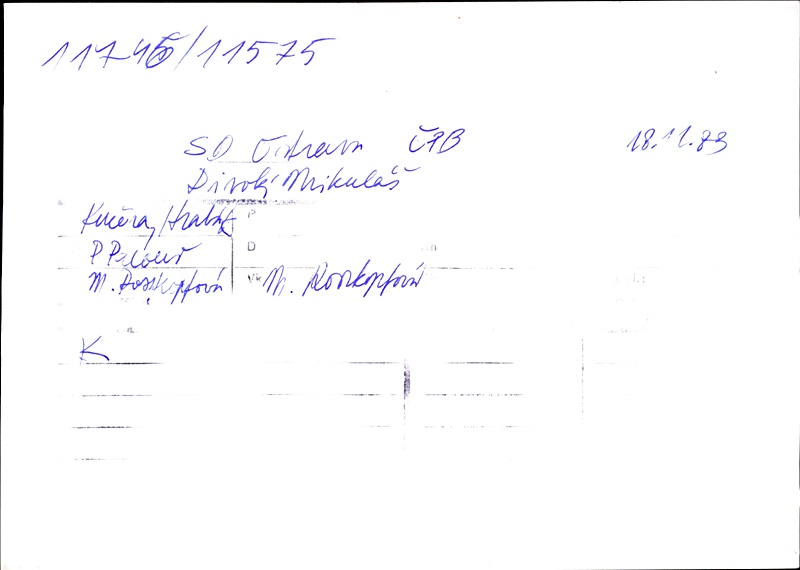 11746/11575
SD Ostrava ČPB 18.12.83
Divoký Mikuláš
Kučera, Hrabák P
P D
M. Rosskopfová M. Rosskopfová
K